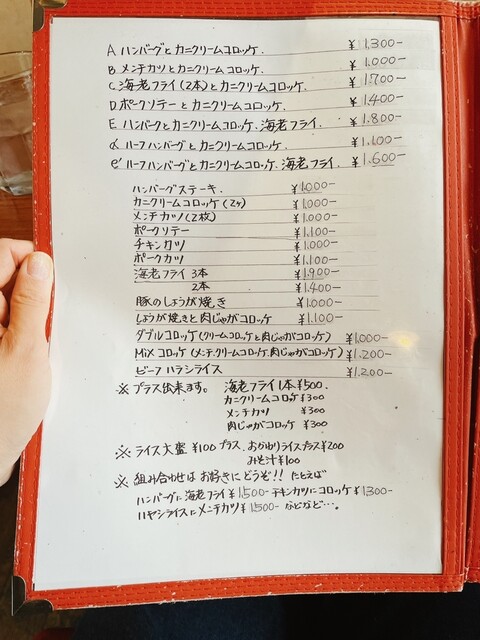 A ハンバーグとカニクリームコロッケ. ¥1,300-
B メンチカツとカニクリームコロッケ. ¥1,000-
C 海老フライ(2本)とカニクリームコロッケ. ¥1700-
D ポークソテーとカニクリームコロッケ. ¥1,400-
E ハンバークとカニクリームコロッケ、海老フライ. ¥1.800-
a' ハーフハンバーグとカニクリームコロッケ. ¥1,100-
e' ハーフハンバーグとカニクリームコロッケ、海老フライ. ¥1,600-
ハンバーグステーキ. ¥1,000-
カニクリームコロッケ(2ヶ) ¥1,000-
メンチカツ(2枚) ¥1,000-
ポークソテー ¥1,100-
チキンカツ ¥1,000-
ポークカツ ¥1,100-
海老フライ 3本 ¥1,900-
2本 ¥1,400-
豚のしょうが焼き ¥1,000-
しょうが焼きと肉じゃがコロッケ ¥1,100-
ダブルコロッケ(クリームコロッケと肉じゃがコロッケ) ¥1,000-
MiXコロッケ(メンチ.クリームコロッケ.肉じゃがコロッケ) ¥1,200-
ビーフハラシライス ¥1,200-
※プラス出来ます。 海老フライ1本¥500.
カニクリームコロッケ¥300
メンチカツ ¥300
肉じゃがコロッケ ¥300
※ライス大盛 ¥100プラス、おかわりライスプラス¥200
みそ汁¥100
※組み合わせはお好きにどうぞ!! たとえば
ハンバーグに海老フライ¥1,500- チキンカツにコロッケ¥1300-
ハヤシライスにメンチカツ¥1,500- などなど…。